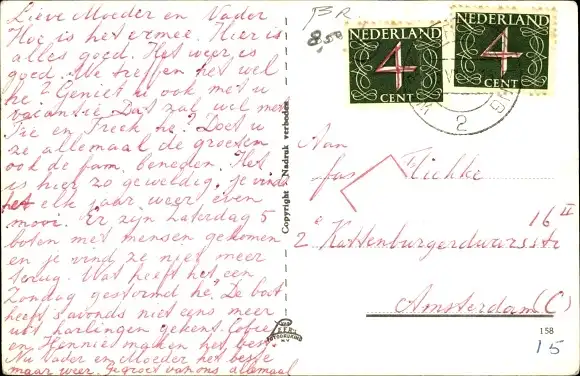 Lieve Moeder en Vader
Hoe is het ermee. Hier is
alles goed. Het weer is
goed. We treffen het wel
he? Geniet u ook met u
vacantie. Dat zal wel met
Tie en Freek he? Doet u
ze allemaal de groeten
ook de fam. beneden. Het
is hier zo geweldig, je vind
het elk jaar weer even
mooi. Er zijn Zaterdag 5
boten met mensen gekomen
en je vind ze niet meer
terug. Wat heeft het een
Zondag gestormd he. De boot
heeft 's avonds niet eens meer
uit harlingen gekent. Cobie
en Hennie maken het best.
Nu Vader en Moeder het beste
maar weer. Gegroet van ons allemaal
Copyright Nadruk verboden
VAN
FOTODRUKIND.
N.V.
BR
8,50
NEDERLAND
4
CENT
NEDERLAND
4
CENT
2
Aan
fam
2e Kattenburgerdwarsstr
16 II
Amsterdam (C)
158
15